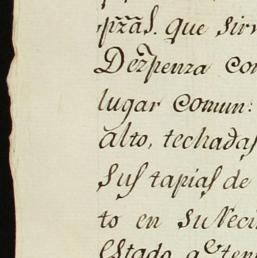 pᵉzas. que sirv
Dezpenza con
lugar comun:
alto, techadas
sus tapias de
to en su Veci
estado, a